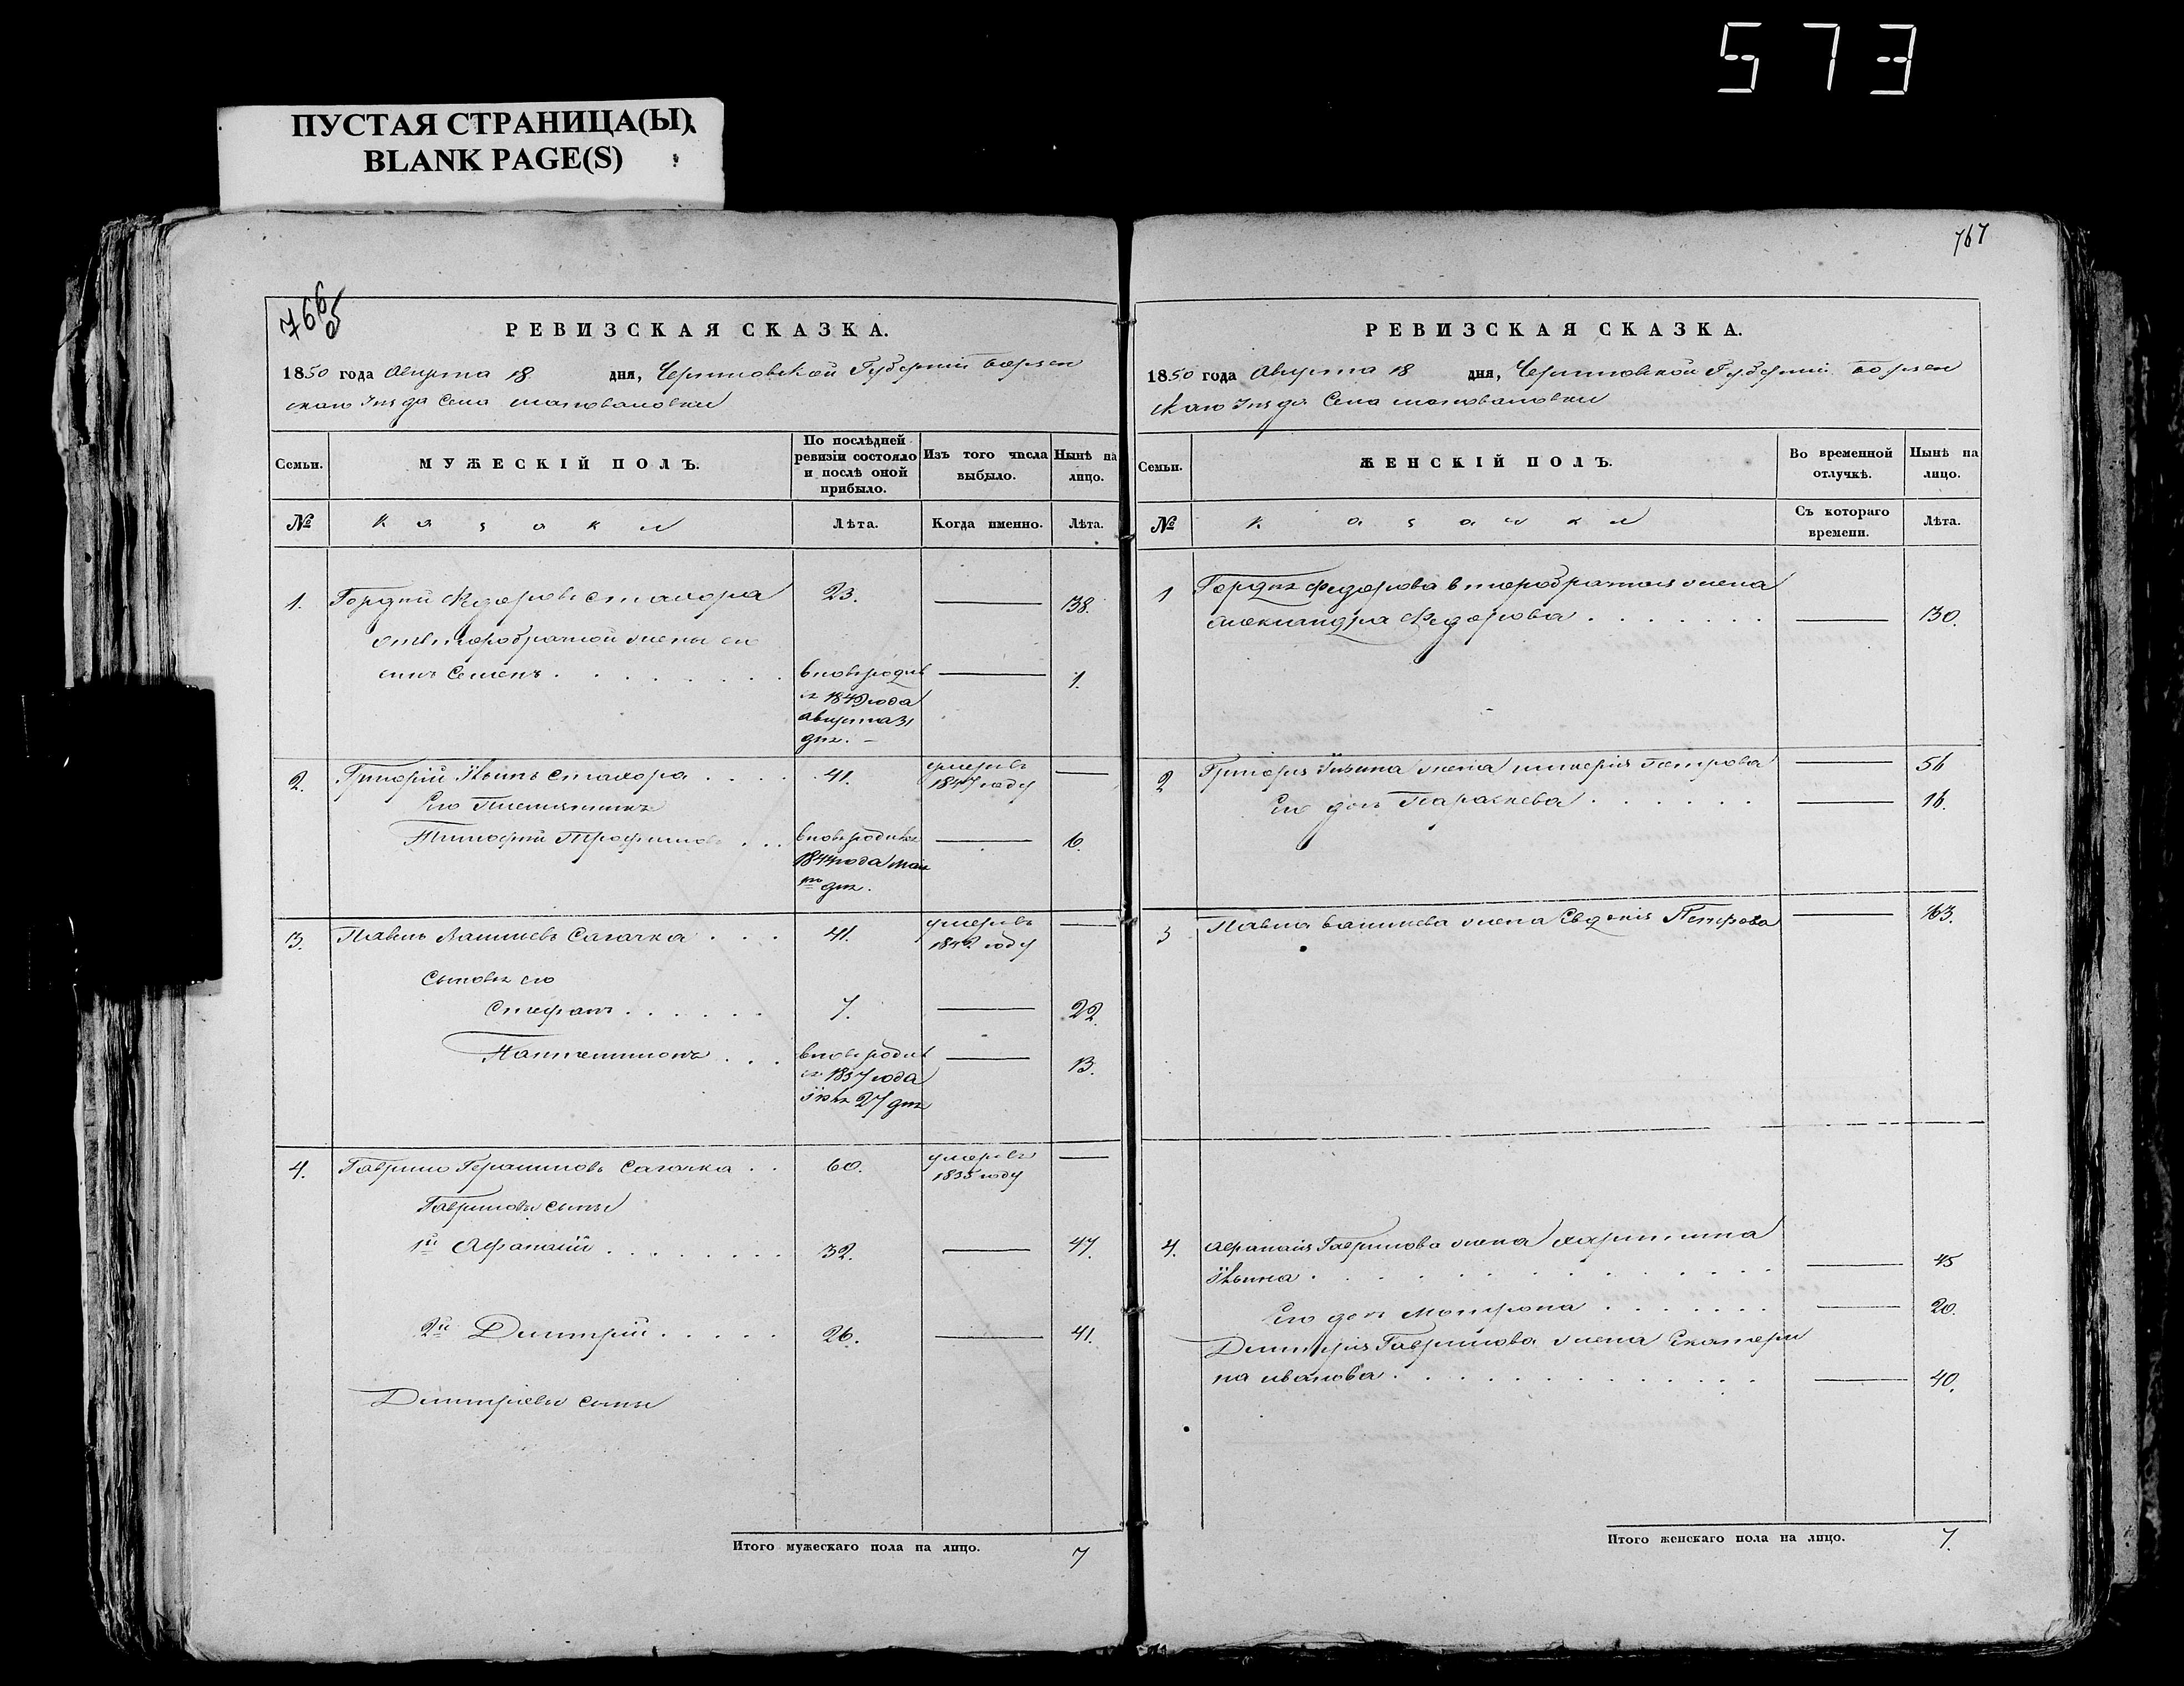 573
ПУСТАЯ СТРАНИЦА(Ы)
BLANK PAGE(S)
766
РЕВИЗСКАЯ СКАЗКА.
1850 года Августа 18 дня, Черниговской Губерніи Борзен
скаго Уезда Села
МУЖЕСКІЙ ПОЛЪ.
Семьи.
По послѣдней ревизіи состояло и послѣ оной прибыло.
Изъ того числа выбыло.
Нынѣ на лицо.
№ Козаки Лѣта. Когда именно. Лѣта.
1. Гордѣй Федоровъ 23. — 38.
отъ второбрачной жены его
сынъ Семенъ вновь родив — 1.
ся 1849 года
августа 31
дня.
2. Григорій Ильинъ 41. умеръ въ —
1847 году
Его племянникъ
Тимофій Трофимовъ вновь родивъ — 6.
1844 года мая
дня.
3. Павелъ Сагачка 41. умеръ въ —
году
Сыновья его
Стефанъ 7. — 22.
Пантелимонъ вновь родив — 13.
ся 1837 года
27 дня
4. Гаврило Герасимовъ Сагачка 60. умеръ въ —
1835 году
Гавриловы сыны
1й Афанасій 32. — 47.
2й Димитрій 26. — 41.
Димитріевы сыны
Итого мужескаго пола на лицо. 7
767
РЕВИЗСКАЯ СКАЗКА.
1850 года Августа 18 дня, Черниговской Губерніи Борзен
скаго Уезда Села
Семьи.
ЖЕНСКІЙ ПОЛЪ.
Во временной отлучкѣ.
Нынѣ на лицо.
№ Козачки Съ котораго времени. Лѣта.
1 Гордѣя Федорова второбрачная жена
Александра Федорова — 30.
2 Григорія Ильина жена Петрова — 56
Его дочь Параскева — 16.
3 Павла жена Евдокія Петрова — 63.
4. Афанасія Гаврилова жена Харитина
Ильина — 45
Его дочь Мотрона — 20.
Димитрія Гаврилова жена Екатери
на Иванова — 40.
Итого женскаго пола на лицо. 7.